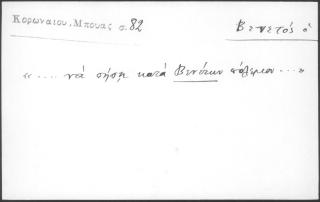 Κορωναίου, Μπουας σ. 82
Βενετός ὁ
« .... νὰ σήσῃ κατά Βενέτων πόλεμον ... »